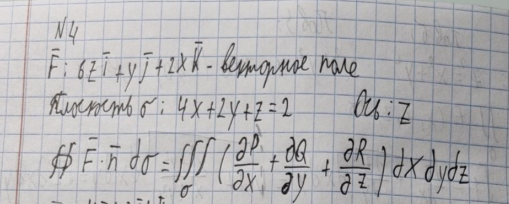 N4
F̄: 6z ī + y j̄ + 2x k̄ - векторное поле
Плоскость σ: 4x+2y+z=2 Ось: z
∯ F̄·n̄ dσ = ∭_σ (∂P/∂x + ∂Q/∂y + ∂R/∂z) dx dy dz